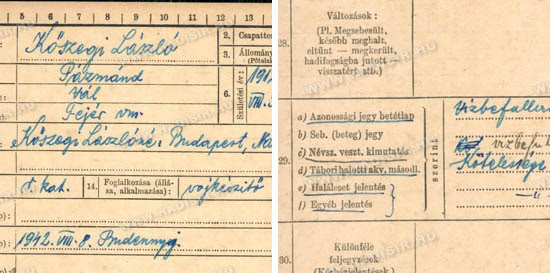 5 6 7 8 9 10 11 12 13
Kőszegi László
2. Csapattes
3. Állomány
(Pótlak
Pázmánd
Vál
Fejér vm.
6. Születési év:
191
VIII.
Kőszegi Lászlóné: Budapest,
r. kat.
14. Foglalkozása (állása, alkalmazása):
vajkészítő
1942. VIII. 8. Budennyj.
28.
Változások:
(Pl. Megsebesült,
később meghalt,
eltűnt — megkerült,
hadifogságba jutott
visszatért stb.)
29.
a) Azonossági jegy betétlap
b) Seb. (beteg) jegy
c) Névsz. veszt. kimutatás
d) Tábori halotti akv. másodl.
e) Haláleset jelentés
f) Egyéb jelentés
szerint
vizbefullu
vizbefu
Kötelessége
-u-
30.
Különféle
feljegyzések
(Kézbejelentések
WWW.HADISIR.HU